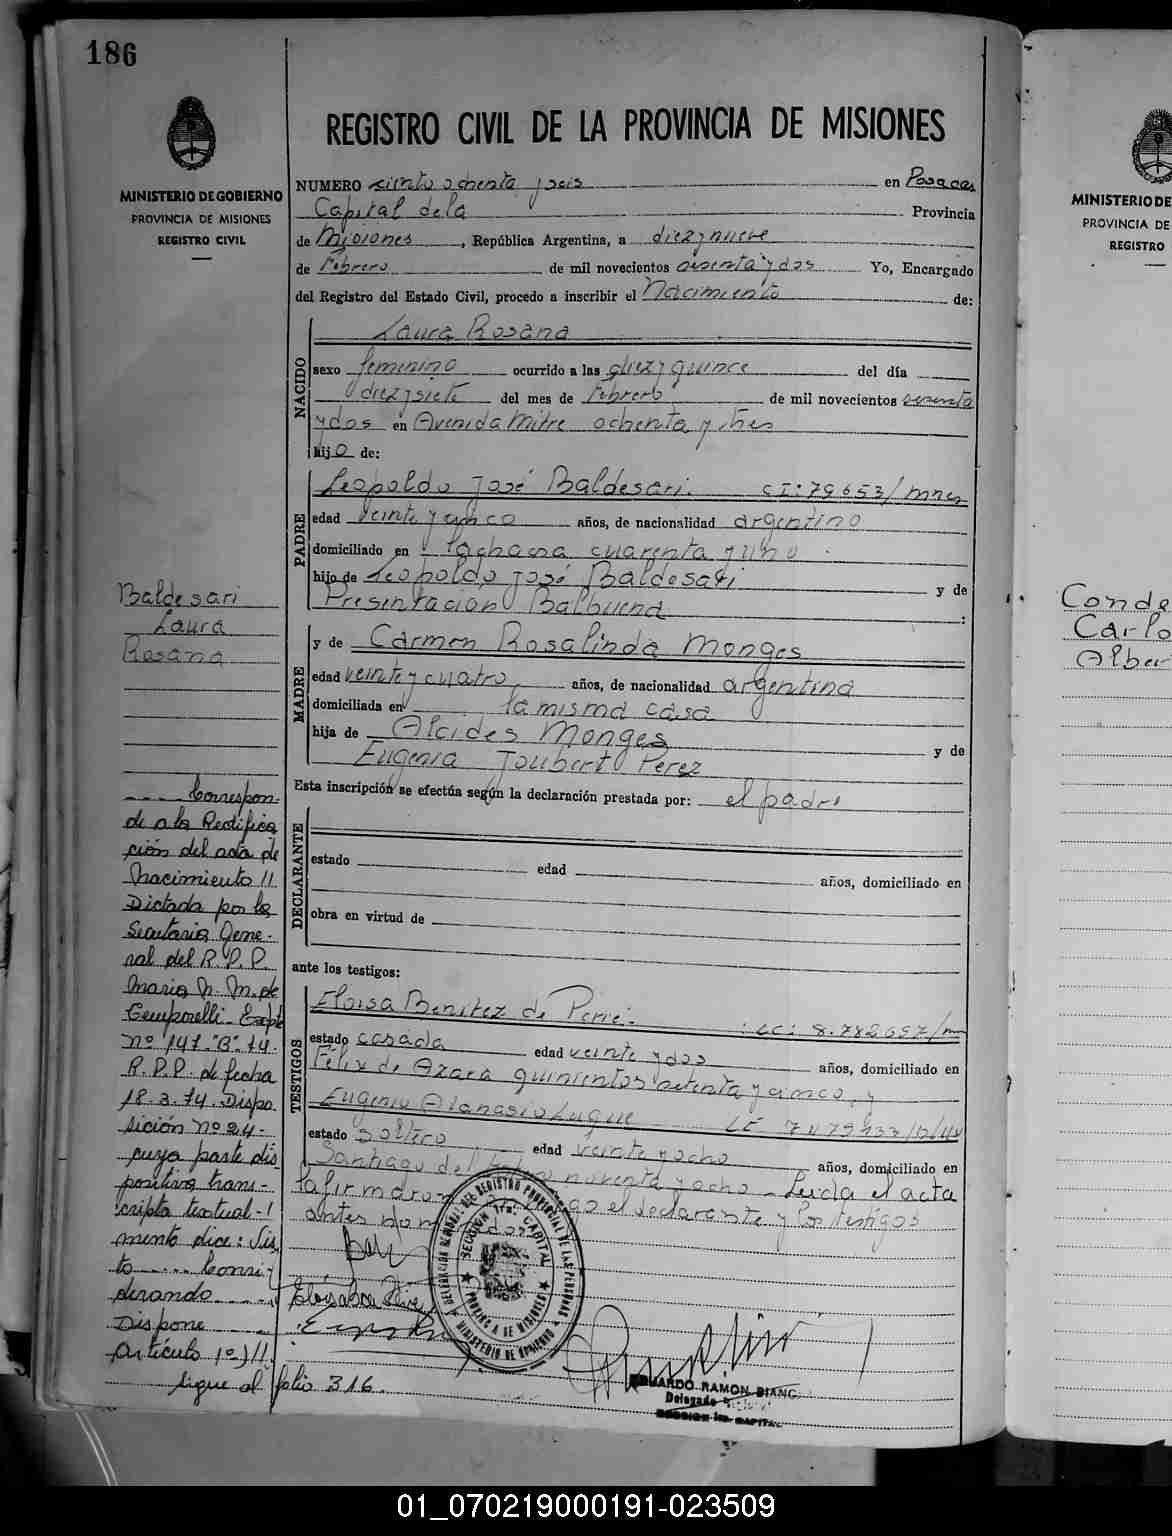 186
MINISTERIO DE GOBIERNO
PROVINCIA DE MISIONES
REGISTRO CIVIL
REGISTRO CIVIL DE LA PROVINCIA DE MISIONES
NUMERO ciento ochenta y seis en Posadas
Capital de la Provincia
de Misiones, República Argentina, a diez y nueve
de Febrero de mil novecientos sesenta y dos Yo, Encargado
del Registro del Estado Civil, procedo a inscribir el Nacimiento de:
NACIDO
Laura Rosana
sexo femenino ocurrido a las diez y quince del día
diez y siete del mes de Febrero de mil novecientos sesenta
y dos en Avenida Mitre ochenta y tres
hijo de:
PADRE
Leopoldo José Baldesari. CI: 79653/mnes
edad veinte y cinco años, de nacionalidad argentino
domiciliado en la chacra cuarenta y uno
hijo de Leopoldo José Baldesari y de
Presentación Balbuena :
MADRE
y de Carmen Rosalinda Monges
edad veinte y cuatro años, de nacionalidad argentina
domiciliada en la misma casa
hija de Alcides Monges y de
Eugenia Joubert Perez
Esta inscripción se efectúa según la declaración prestada por: el padre
DECLARANTE
estado edad años, domiciliado en
obra en virtud de
ante los testigos:
TESTIGOS
Eloisa Benitez de Perié. LC: 8.782657/m
estado casada edad veinte y dos años, domiciliado en
Félix de Azara quinientos setenta y cinco, y
Eugenio Atanasio Luque LE
estado soltero edad veinte y ocho años, domiciliado en
Santiago del noventa y ocho - Leida el acta
la firmaron el declarante y los testigos
antes
Baldesari
Laura
Rosana
Correspon-
de a la Rectifica
ción del acta de
Nacimiento //
Dictada por la
Secretaria Gene-
ral del R.P.P.
Maria N. M. de
Temporelli - Expte
nº 147-"B"-74-
R.P.P. de fecha
18.3.74. Dispo
sición nº 24-
cuya parte dis
positiva trans-
cripta textual-/
mente dice: Vis
to ..... Consi-
derando
Dispone
Artículo 1º)//.
sigue al folio 316.
DELEGACION GENERAL DEL REGISTRO PROVINCIAL DE LAS PERSONAS
SECCION 1ra. CAPITAL
PROVINCIA DE MISIONES
MINISTERIO DE GOBIERNO
EDUARDO RAMON BIANC
Delegado
SECCION 1ra. CAPITAL
MINISTERIO DE
PROVINCIA DE
REGISTRO
Conde
Carlo
Alber
01_070219000191-023509